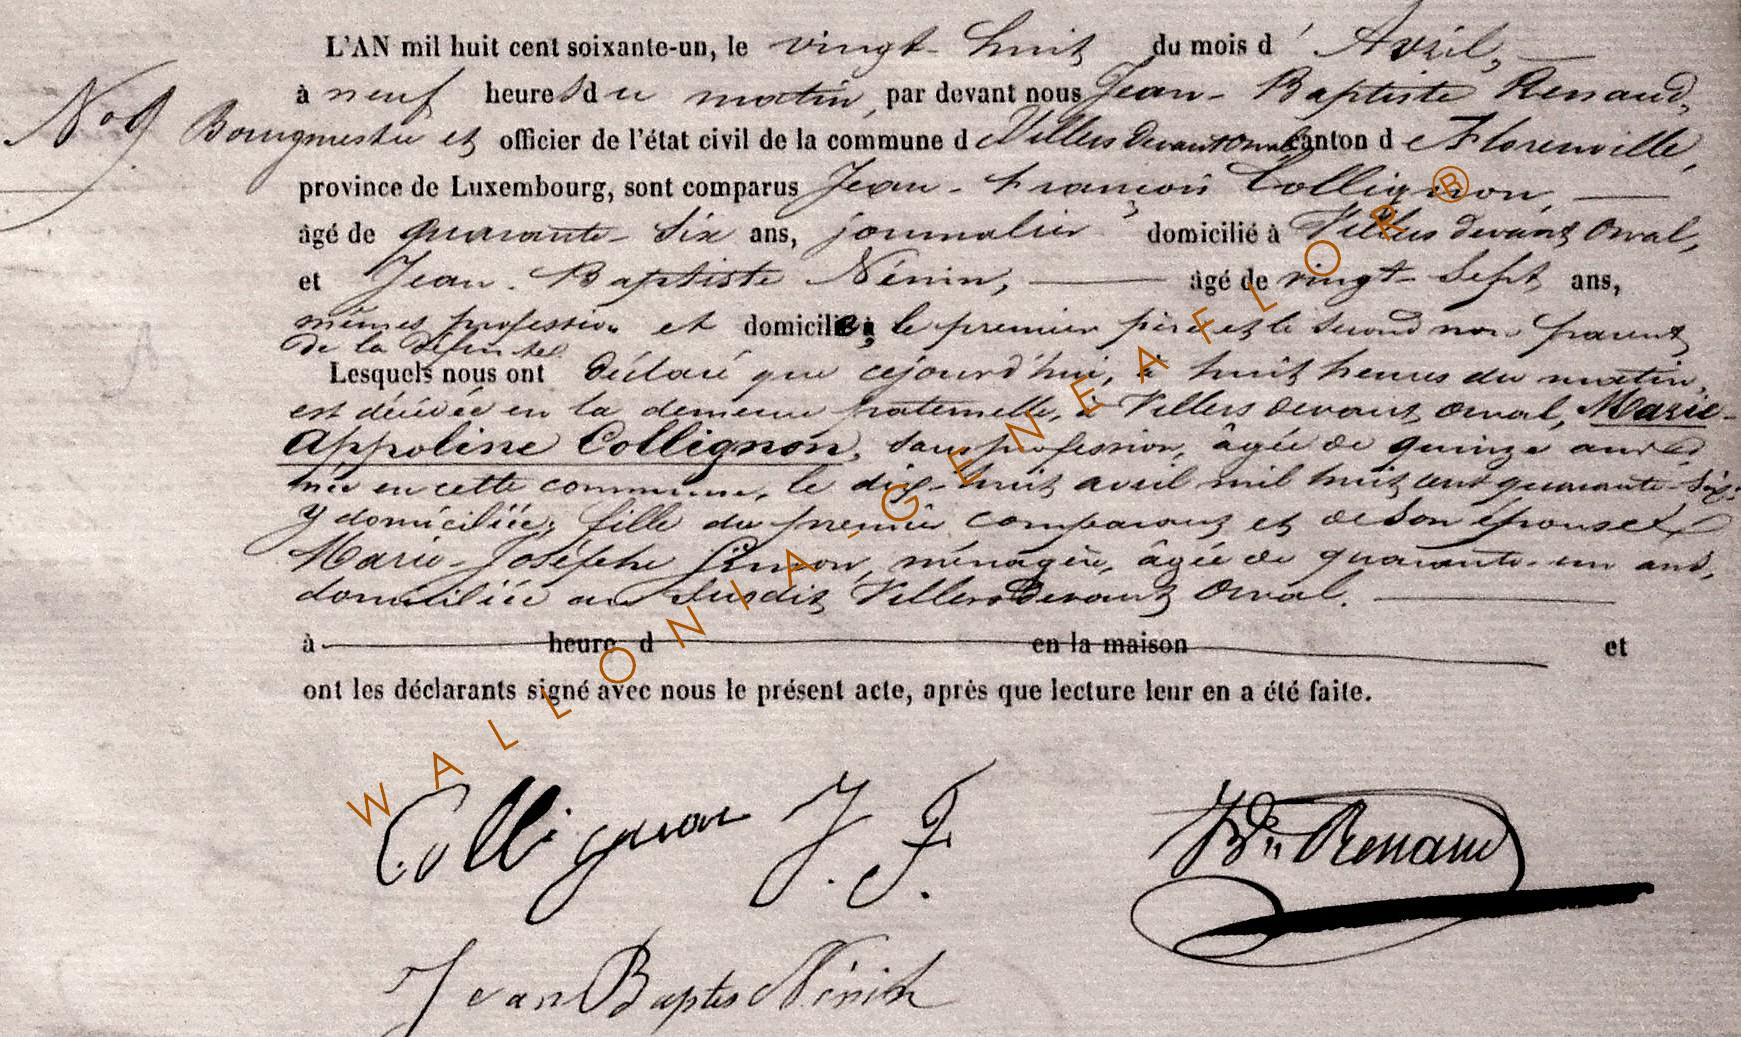 L'AN mil huit cent soixante-un, le vingt-huit du mois d'Avril,
à neuf heures du matin, par devant nous Jean-Baptiste Renaud,
N° 9 Bourgmestre et officier de l'état civil de la commune de Villers devant Orval canton de Florenville,
province de Luxembourg, sont comparus Jean-françois Collignon,
âgé de quarante-six ans, journalier domicilié à Villers devant Orval,
et Jean-Baptiste Nénin, âgé de vingt-sept ans,
mêmes profession et domicile, le premier père et le second non-parent
de la défunte
Lesquels nous ont déclaré que cejourd'hui, à huit heures du matin,
est décédée en la demeure paternelle, à Villers devant Orval, Marie-
Appoline Collignon, sans profession, âgée de quinze ans,
née en cette commune, le dix-huit avril mil huit cent quarante-six,
y domiciliée, fille du premier comparant et de son épouse
Marie-Josèphe, ménagère, âgée de quarante-un ans,
domiciliée au susdit Villers devant Orval.
à heure d en la maison et
ont les déclarants signé avec nous le présent acte, après que lecture leur en a été faite.
Collignon J. F. JBte Renaud
Jean Baptis Nénin
WALLONIA-GENEAFLOR®